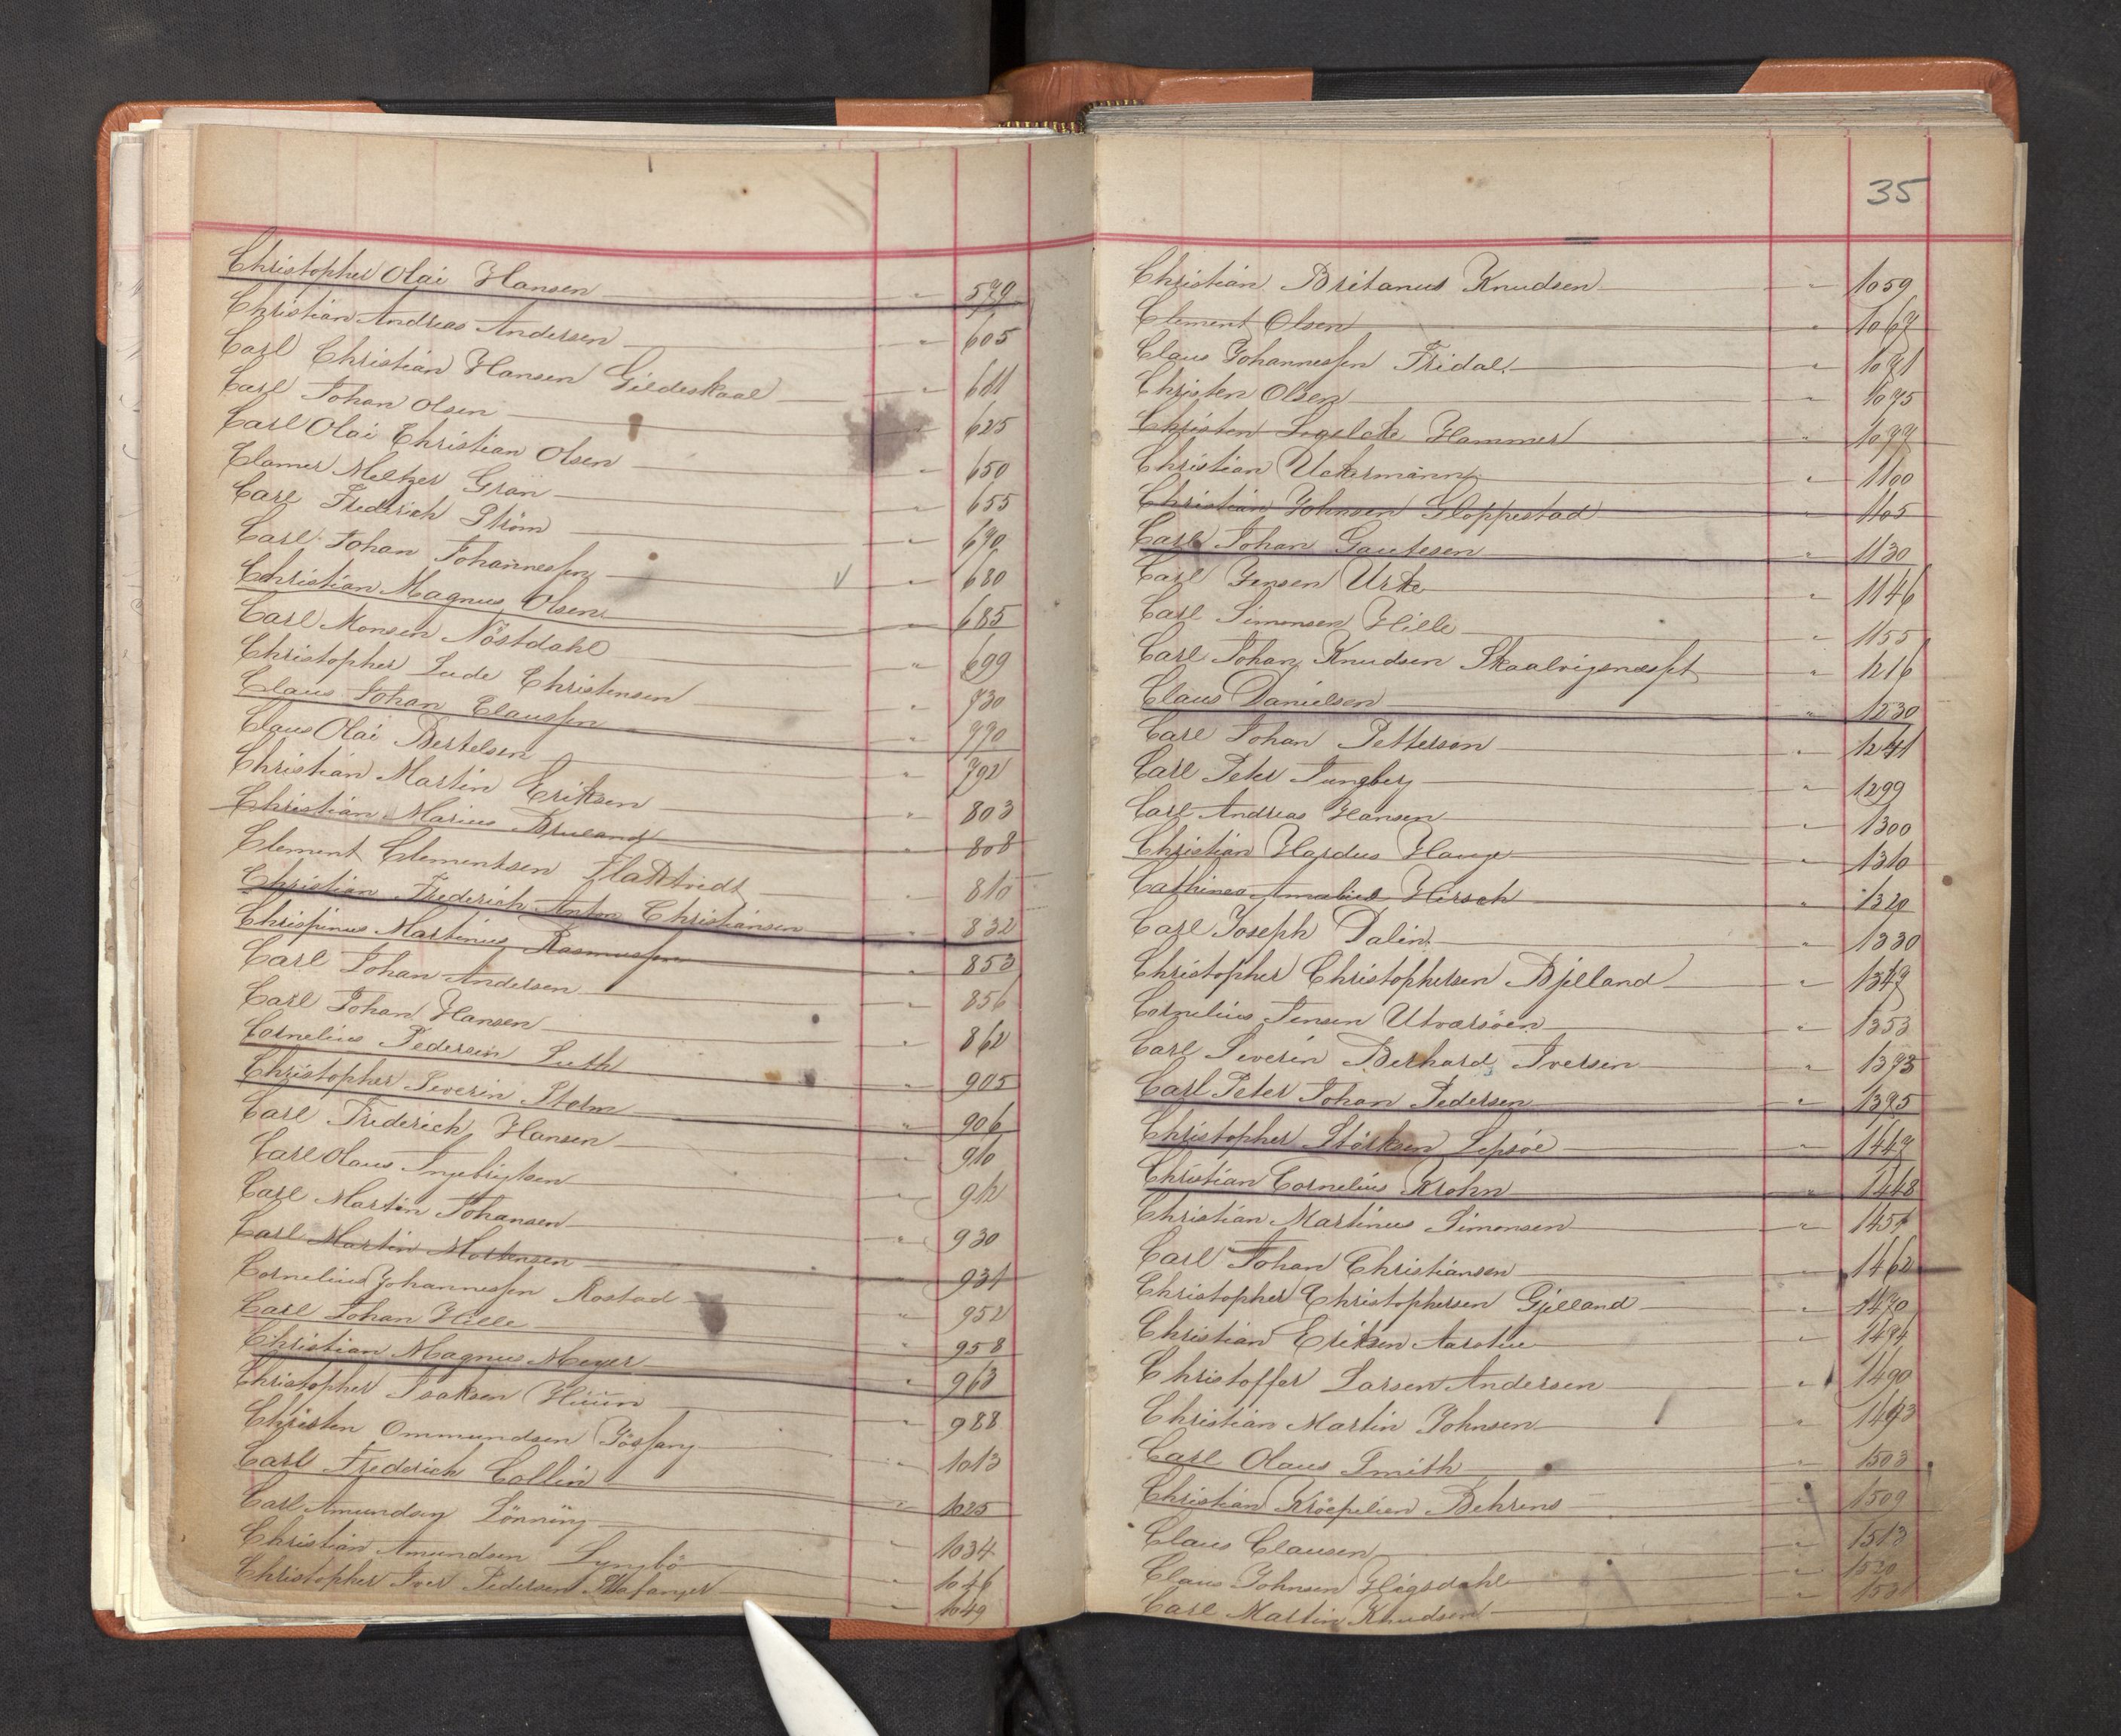 Christopher Olai Hansen " 579
Christian Andreas Andersen " 605
Carl Christian Hansen Gildeskaal " 611
Carl Johan Olsen " 625
Carl Olai Christian Olsen " 650
Clamer Meltzer Gran " 655
Carl Frederich Strøm " 670
Carl Johan Johannessen " 680
Christian Magnus Olsen " 685
Carl Monsen Nöstdahl " 699
Christopher Lude Christensen " 730
Claus Johan Claussen " 770
Claus Olai Bertelsen " 792
Christian Martin Eriksen " 803
Christian Marius " 808
Clement Clementsen " 810
Christian Frederich Anton Christiansen " 832
Chrispinus Martinus Rasmussen " 853
Carl Johan Andersen " 856
Carl Johan Hansen " 862
Cornelius Pedersen Luth " 905
Christopher Severin Stolm " 906
Carl Frederich Hansen " 910
Carl Olaus Ingebrigtsen " 912
Carl Martin Johansen " 930
Carl Martin Mortensen " 931
Cornelius Johannessen Rostad " 952
Carl Johan Hille " 958
Christian Magnus Meyer " 963
Christopher Isaksen Huun " 988
Christen Ommundsen Jösfang " 1013
Carl Frederich Collin " 1025
Carl Amundsen Lönning " 1034
Christian Amundsen Lyngbö " 1046
Christopher Iver Pedersen " 1049
35
Christian Britanus Knudsen " 1059
Clement Olsen " 1067
Claus Johannessen Fridal " 1071
Christen Olsen " 1075
Christen Hammer " 1077
Christian Uckermann " 1100
Christian Johnsen Gloppestad " 1105
Carl Johan Gautesen " 1130
Carl Jensen Urke " 1146
Carl Simonsen Hille " 1155
Carl Johan Knudsen " 1216
Claus Danielsen " 1230
Carl Johan Petterson " 1271
Carl Peter Jungberg " 1299
Carl Andreas Hansen " 1300
Christian Hardus Hauge " 1310
Cathinca Amalie Hirsch " 1320
Carl Joseph Dalin " 1330
Christopher Christophersen Bjelland " 1347
Cornelius Jensen Utværsöen " 1353
Carl Severin Berhard Iversen " 1373
Carl Peter Johan Pedersen " 1375
Christopher Störksen Lepsöe " 1447
Christian Cornelius Krohn " 1448
Christian Martinus Simonsen " 1457
Carl Johan Christiansen " 1462
Christopher Christophersen Gjelland " 1470
Christian Eriksen Aarstue " 1474
Christoffer Larsen Andersen " 1490
Christian Martin Johnsen " 1493
Carl Olaus Smith " 1503
Christian Kröepelien Behrens " 1509
Claus Clausen " 1513
Claus Johnsen Högsdahl " 1520
Carl Martin Knudsen " 1531